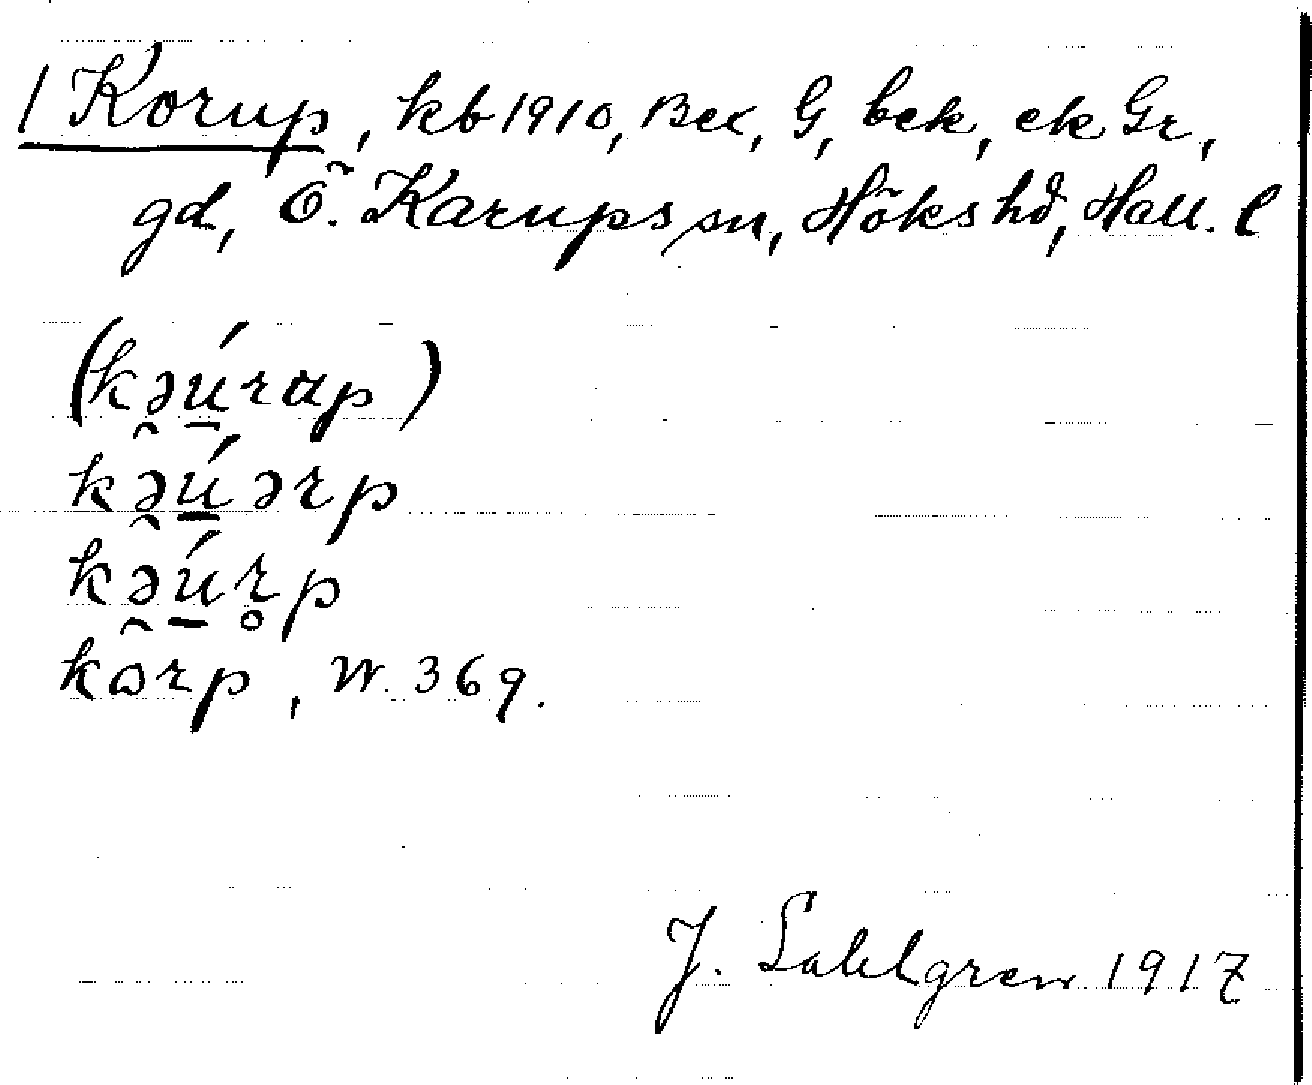 1 Korup, kb 1910, Bec, G, bek, ek Gr,
gd, Ö. Karups sn, Höks hd, Hall. l
(kə̯ú̱rap)
kə̯ú̱ərp
kə̯ú̱r̥p
kɷrp, W. 369.
J. Sahlgren 1917